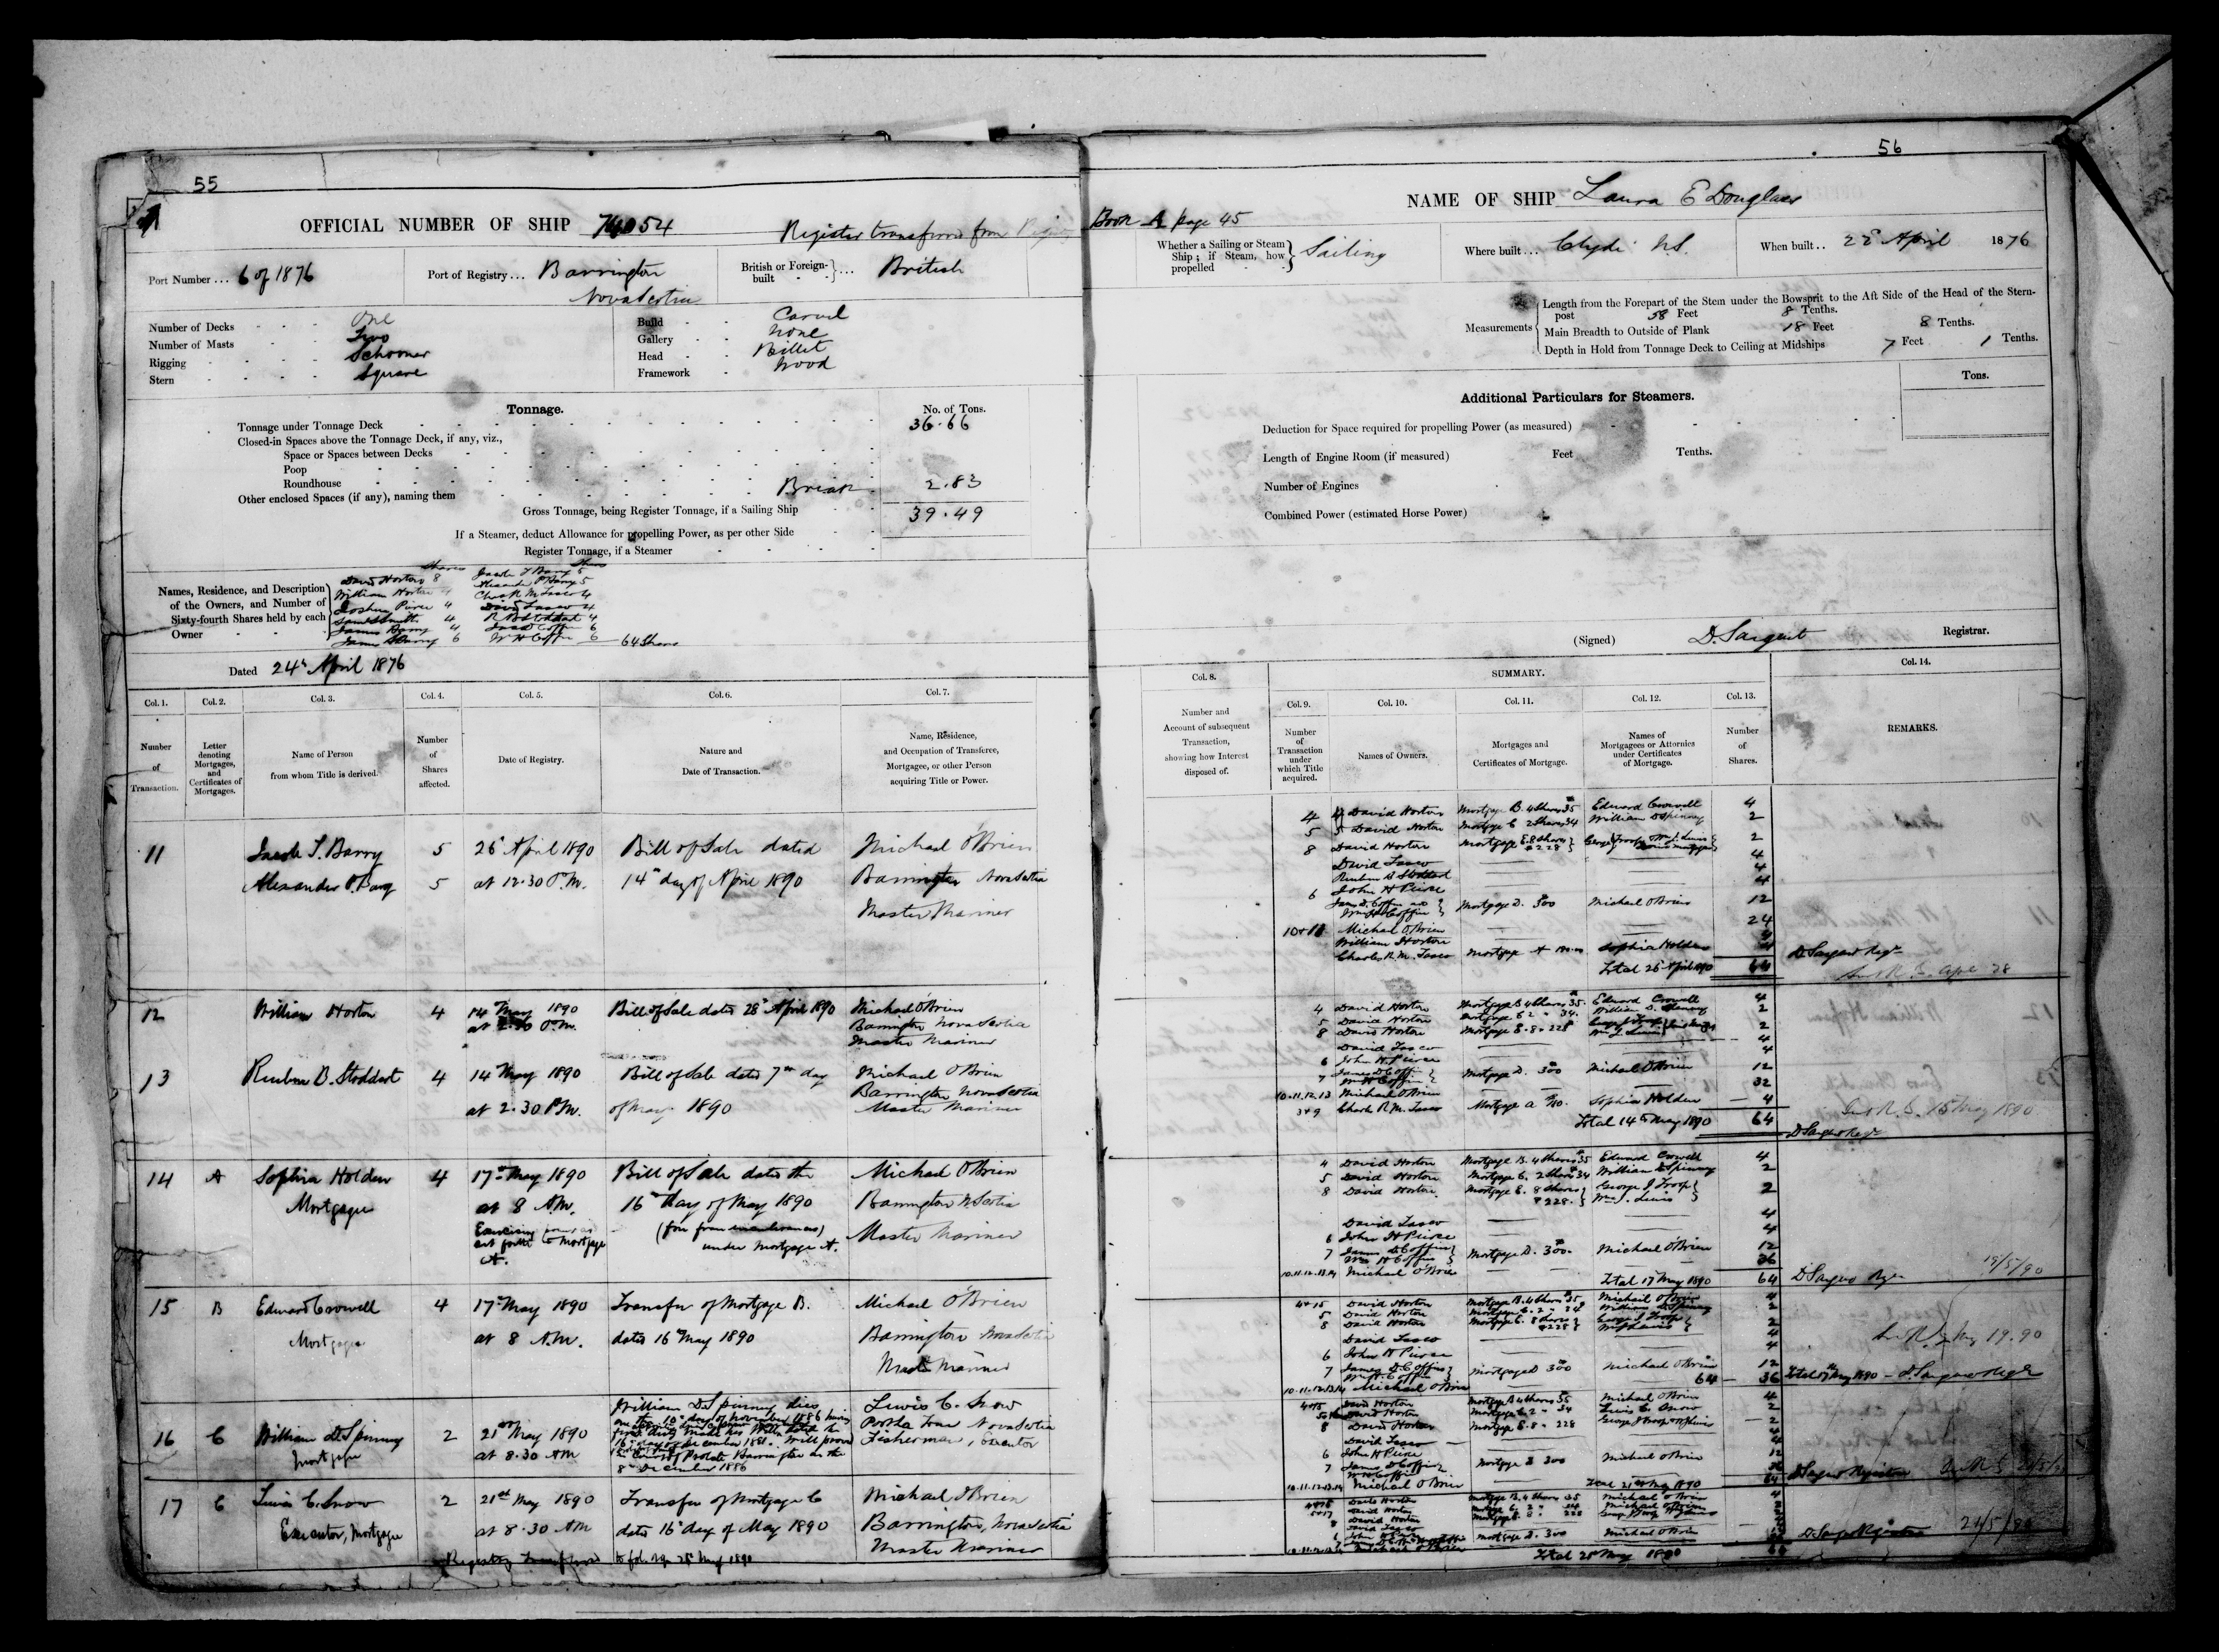 55
OFFICIAL NUMBER OF SHIP 74054
Register transferred from
Port Number ... 6 of 1876
Port of Registry ... Barrington
Nova Scotia
British or Foreign-built ... British
Number of Decks One
Number of Masts Two
Rigging Schooner
Stern Square
Build Carvel
Gallery None
Head Billet
Framework Wood
Tonnage.
No. of Tons.
Tonnage under Tonnage Deck 36.66
Closed-in Spaces above the Tonnage Deck, if any, viz.,
Space or Spaces between Decks
Poop
Roundhouse
Other enclosed Spaces (if any), naming them Break 2.83
Gross Tonnage, being Register Tonnage, if a Sailing Ship 39.49
If a Steamer, deduct Allowance for propelling Power, as per other Side
Register Tonnage, if a Steamer
Names, Residence, and Description of the Owners, and Number of Sixty-fourth Shares held by each Owner
David Horton 8
William Horton 4
4
4
James Barry 4
6
Jacob T Barry 5
Alexander P Barry 5
Chas R M Lasco 4
David Lasco 4
R B Stoddart 4
6
W H Coffin 6
64 Shares
Dated 24th April 1876
Col. 1. Col. 2. Col. 3. Col. 4. Col. 5. Col. 6. Col. 7.
Number of Transaction.
Letter denoting Mortgages, and Certificates of Mortgages.
Name of Person from whom Title is derived.
Number of Shares affected.
Date of Registry.
Nature and Date of Transaction.
Name, Residence, and Occupation of Transferee, Mortgagee, or other Person acquiring Title or Power.
11 Jacob T. Barry 5 26 April 1890 Bill of Sale dated Michael O'Brien
Alexander P. Barry 5 at 12.30 P.M. 14th day of April 1890 Barrington Nova Scotia
Master Mariner
12 William Horton 4 14th May 1890 Bill of Sale dated 28th April 1890 Michael O'Brien
at 2.30 P.M. Barrington Nova Scotia
Master Mariner
13 Reuben B. Stoddart 4 14 May 1890 Bill of Sale dated 7th day Michael O'Brien
at 2.30 P.M. of May 1890 Barrington Nova Scotia
Master Mariner
14 A Sophia Holden 4 17th May 1890 Bill of Sale dated the Michael O'Brien
Mortgagee at 8 A.M. 16th day of May 1890 Barrington N. Scotia
Exercising power as (free from incumbrances) Master Mariner
set forth to Mortgage under Mortgage A.
A.
15 B Edward Crowell 4 17th May 1890 Transfer of Mortgage B. Michael O'Brien
Mortgagee at 8 A.M. dated 16th May 1890 Barrington Nova Scotia
Master Mariner
16 C William D. Spinney 2 21st May 1890 William D. Spinney dies Lewis C. Snow
Mortgagee at 8.30 AM on the 10th day of November 1886 having Nova Scotia
16th day of December 1881. Will proved Fisherman, Executor
in Court of Probate Barrington on the
8th December 1886
17 C Lewis C. Snow 2 21st May 1890 Transfer of Mortgage C Michael O'Brien
Executor, Mortgagee at 8.30 AM dated 16th day of May 1890 Barrington, Nova Scotia
Master Mariner
Registry transferred to 28th May 1890
56
NAME OF SHIP Laura E Douglass
Book A page 45
Whether a Sailing or Steam Ship; if Steam, how propelled Sailing
Where built ... Clyde N.S.
When built .. 22d April 1876
Measurements
Length from the Forepart of the Stem under the Bowsprit to the Aft Side of the Head of the Stern-
post 58 Feet 8 Tenths.
Main Breadth to Outside of Plank 18 Feet 8 Tenths.
Depth in Hold from Tonnage Deck to Ceiling at Midships 7 Feet 1 Tenths.
Tons.
Additional Particulars for Steamers.
Deduction for Space required for propelling Power (as measured)
Length of Engine Room (if measured) Feet Tenths.
Number of Engines
Combined Power (estimated Horse Power)
(Signed) D. Sargent Registrar.
Col. 8. SUMMARY. Col. 14.
Col. 9. Col. 10. Col. 11. Col. 12. Col. 13.
Number and Account of subsequent Transaction, showing how Interest disposed of.
Number of Transaction under which Title acquired.
Names of Owners.
Mortgages and Certificates of Mortgage.
Names of Mortgagees or Attornies under Certificates of Mortgage.
Number of Shares.
REMARKS.
4 David Horton Mortgage B. 4 Shares 35 Edward Crowell 4
5 David Horton Mortgage C 2 Shares 34 William D Spinney 2
8 David Horton Mortgage E. 8 Shares 228 2
David Lasco 4
Reuben B Stoddard 4
6 John H Pierce 4
James D. Coffin and Wm H Coffin Mortgage D. 300 Michael O'Brien 12
10+11 Michael O'Brien 24
William Horton 4
Charles R. M. Lasco Mortgage A Sophia Holden 4
Total 26 April 1890 64 D Sargent Regr
4 David Horton Mortgage B 4 Shares 35. Edward Crowell 4
5 David Horton Mortgage C 2 " 34. William D. Spinney 2
8 David Horton Mortgage E. 8 " 228 2
David Lasco 4
6 John H. Pierce 4
7 James D Coffin Wm H Coffin Mortgage D. 300 Michael O'Brien 12
10.11.12.13 Michael O'Brien 32
3+9 Charles R M. Lasco Mortgage A Sophia Holden 4
Total 14th May 1890 64 15 May 1890
D Sargent Regr
4 David Horton Mortgage B. 4 Shares 35 Edward Crowell 4
5 David Horton Mortgage C. 2 Shares 34 William D Spinney 2
8 David Horton Mortgage E. 8 Shares 228. George J Troop Wm J. Lewis 2
David Lasco 4
6 John H Pierce 4
7 James D Coffin Wm H Coffin Mortgage D. 300. Michael O'Brien 12
10.11.12.13.14 Michael O'Brien 36
Total 17 May 1890 64 D Sargent Regr 19/5/90
4+15 David Horton Mortgage B. 4 Shares 35 Michael O'Brien 4
5 David Horton Mortgage C. 2 " 34 William D Spinney 2
8 David Horton Mortgage E. 8 Shares 228 2
David Lasco 4
6 John H Pierce 4
7 James D Coffin Wm H. Coffin Mortgage D 300 Michael O'Brien 12
10.11.12.13.14 Michael O'Brien 64 36 Total 17 May 1890 - D. Sargent Regr
4+15 David Horton Mortgage B 4 Shares 35 Michael O'Brien 4
David Horton Mortgage C 2 " 34 Lewis C. Snow 2
8 David Horton Mortgage E. 8 " 228 2
David Lasco 4
6 John H Pierce 4
7 James D Coffin Wm H Coffin Mortgage D 300 Michael O'Brien 12
10.11.12.13.14 Michael O'Brien 36
Total 21st May 1890 64 D Sargent Registrar
4+15 David Horton Mortgage B. 4 Shares 35 Michael O'Brien 4
5+17 David Horton Mortgage C. 2 " 34 Michael O'Brien 2
8 David Horton 228
David Lasco
Mortgage D. 300 Michael O'Brien
D Sargent Registrar
Total 21 May 1890 64